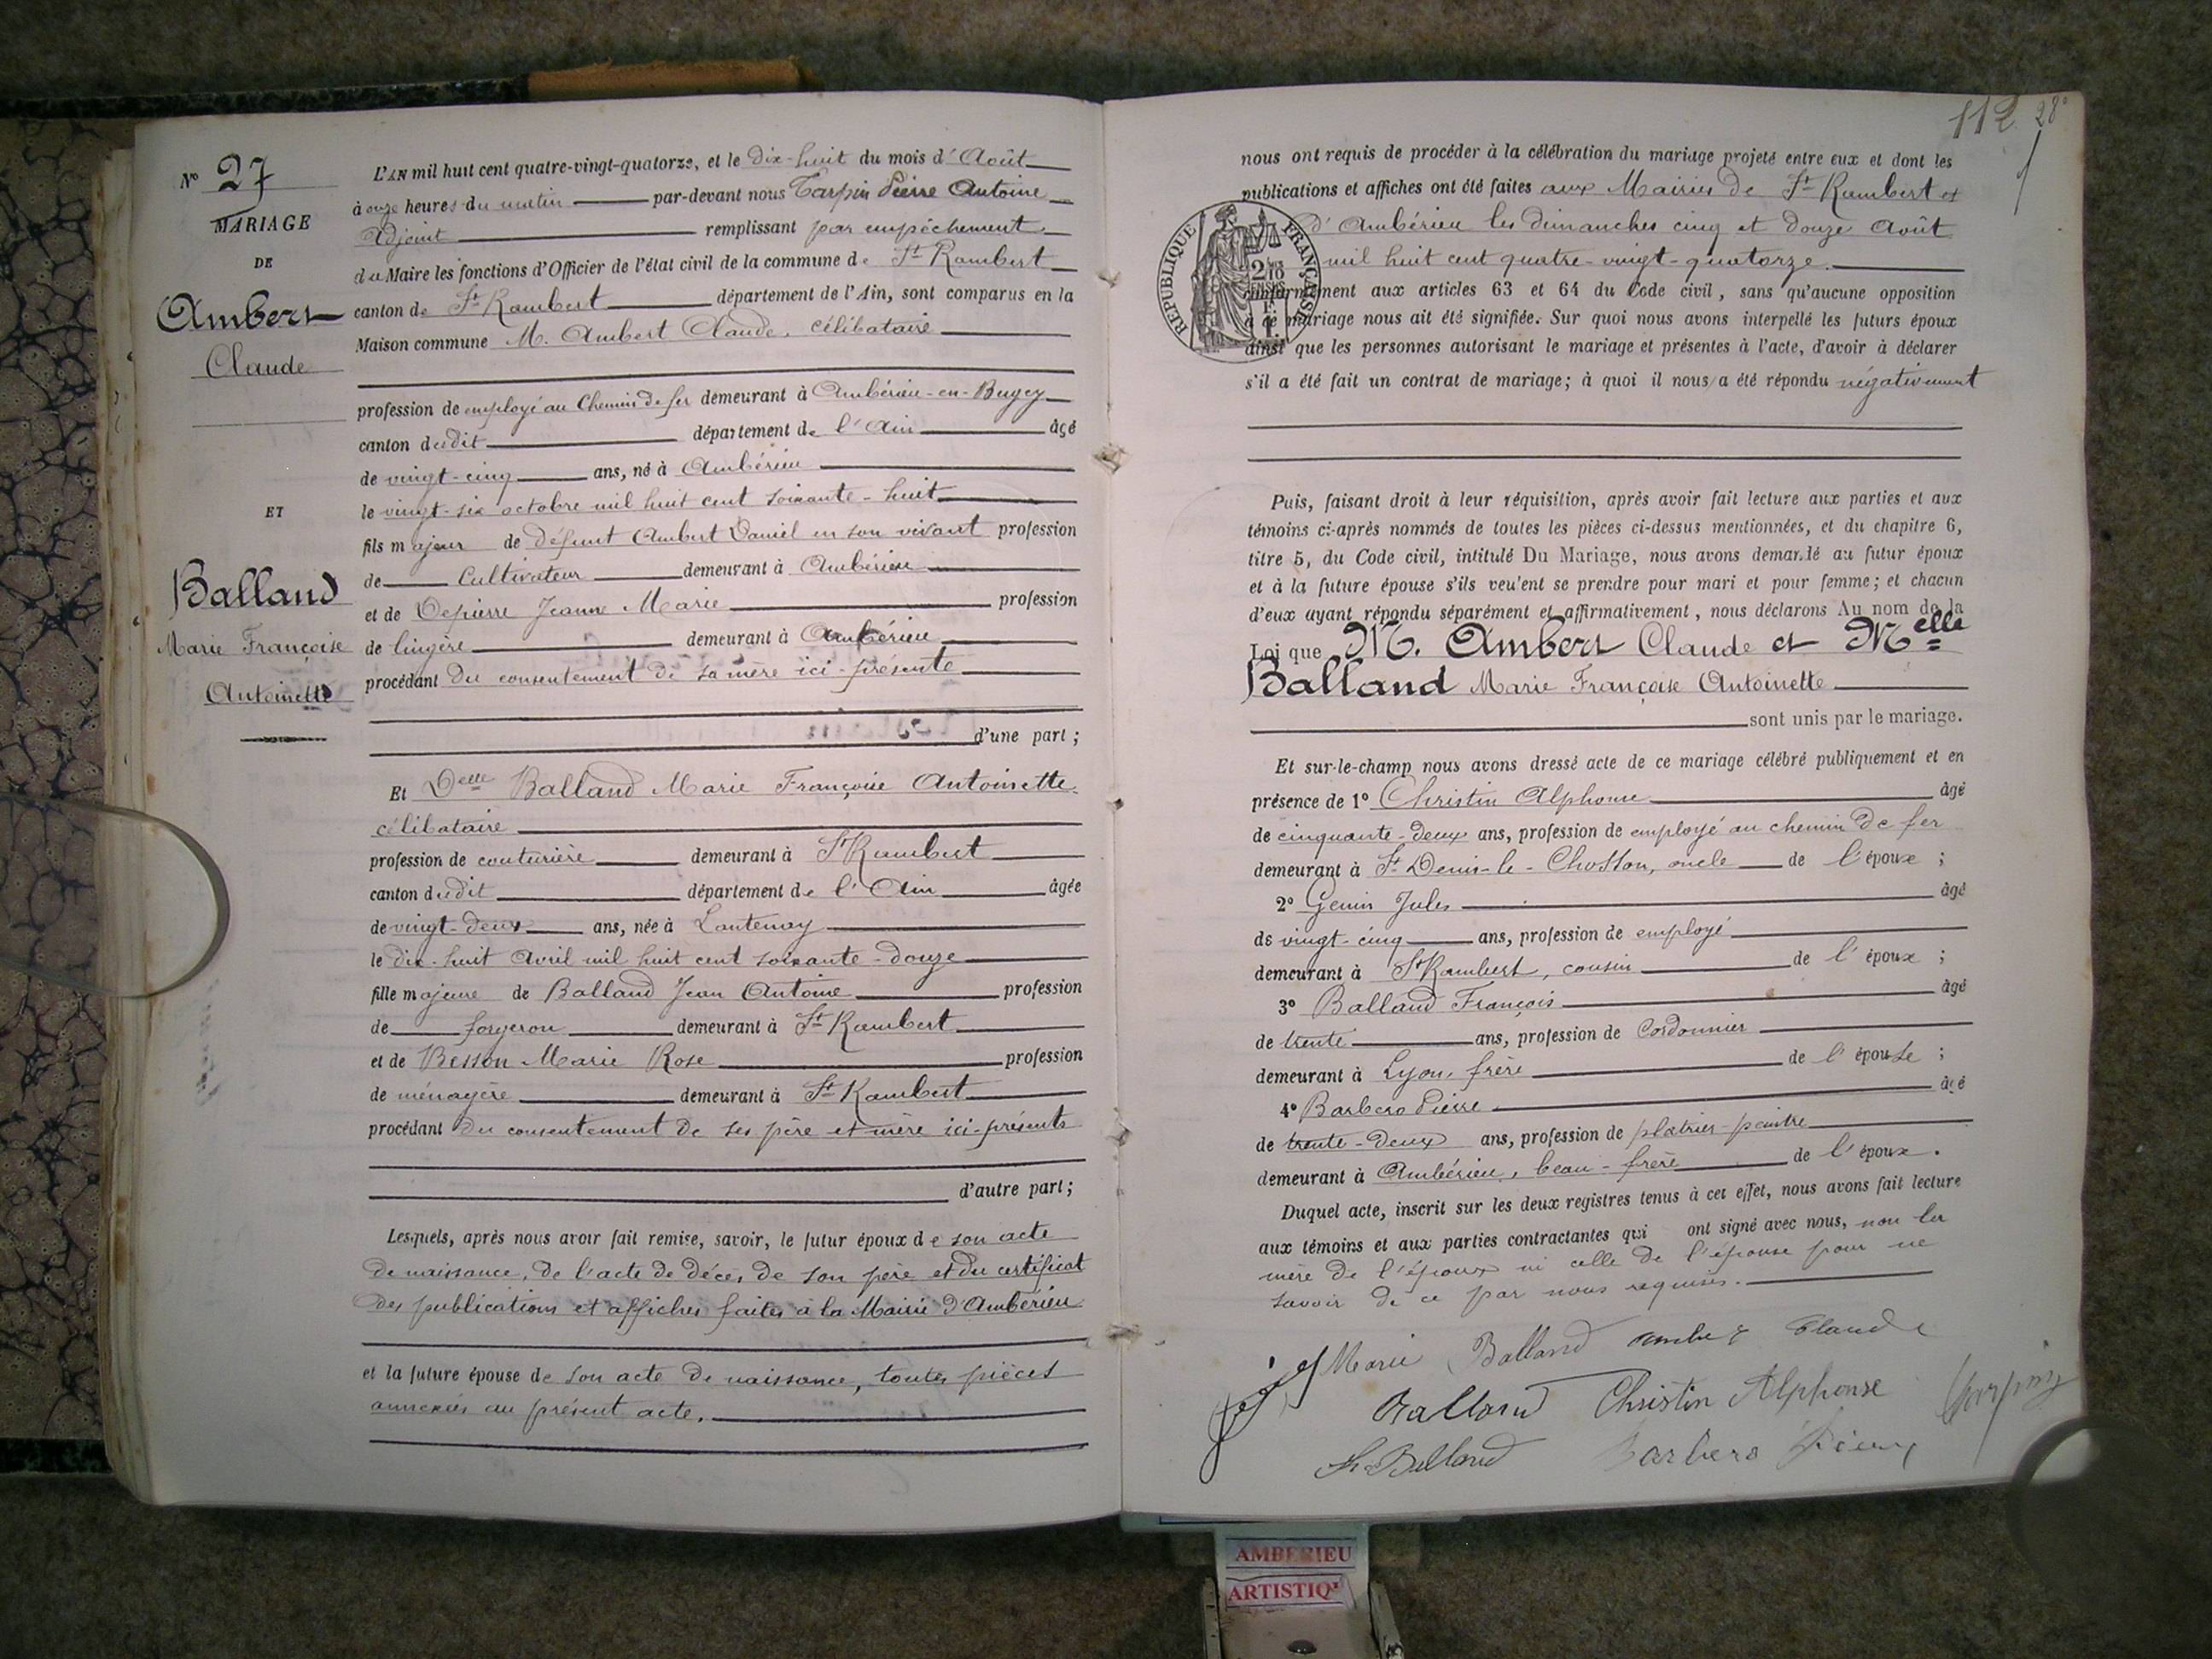 N° 27
MARIAGE
DE
Ambert
Claude
ET
Balland
Marie Françoise
Antoinette
L'AN mil huit cent quatre-vingt-quatorze, et le dix-huit du mois d'Août
à onze heures du matin par-devant nous Tarpin Pierre Antoine
Adjoint remplissant par empêchement
du Maire les fonctions d'Officier de l'état civil de la commune de St Rambert
canton de St Rambert département de l'Ain, sont comparus en la
Maison commune M. Ambert Claude, célibataire
profession de employé au Chemin de fer demeurant à Ambérieu-en-Bugey
canton dudit département de l'Ain âgé
de vingt-cinq ans, né à Ambérieu
le vingt-six octobre mil huit cent soixante-huit
fils majeur de défunt Ambert Daniel en son vivant profession
de Cultivateur demeurant à Ambérieu
et de Depierre Jeanne Marie profession
de lingère demeurant à Ambérieu
procédant du consentement de sa mère ici-présente
d'une part ;
Et Delle Balland Marie Françoise Antoinette
célibataire
profession de couturière demeurant à St Rambert
canton dudit département de l'Ain âgée
de vingt-deux ans, née à Lantenay
le dix-huit Avril mil huit cent soixante-douze
fille majeure de Balland Jean Antoine profession
de forgeron demeurant à St Rambert
et de Besson Marie Rose profession
de ménagère demeurant à St Rambert
procédant du consentement de ses père et mère ici-présents
d'autre part ;
Lesquels, après nous avoir fait remise, savoir, le futur époux de son acte
de naissance, de l'acte de décès de son père et du certificat
des publications et affiches faites à la Mairie d'Ambérieu
et la future épouse de son acte de naissance, toutes pièces
annexées au présent acte.
112 28
nous ont requis de procéder à la célébration du mariage projeté entre eux et dont les
publications et affiches ont été faites aux Mairies de St Rambert et
d'Ambérieu les dimanches cinq et douze Août
mil huit cent quatre-vingt-quatorze.
conformément aux articles 63 et 64 du Code civil, sans qu'aucune opposition
à ce mariage nous ait été signifiée. Sur quoi nous avons interpellé les futurs époux
ainsi que les personnes autorisant le mariage et présentes à l'acte, d'avoir à déclarer
s'il a été fait un contrat de mariage ; à quoi il nous a été répondu négativement
RÉPUBLIQUE FRANÇAISE
Puis, faisant droit à leur réquisition, après avoir fait lecture aux parties et aux
témoins ci-après nommés de toutes les pièces ci-dessus mentionnées, et du chapitre 6,
titre 5, du Code civil, intitulé Du Mariage, nous avons demandé au futur époux
et à la future épouse s'ils veulent se prendre pour mari et pour femme ; et chacun
d'eux ayant répondu séparément et affirmativement, nous déclarons Au nom de la
Loi que M. Ambert Claude et Melle
Balland Marie Françoise Antoinette
sont unis par le mariage.
Et sur-le-champ nous avons dressé acte de ce mariage célébré publiquement et en
présence de 1° Christin Alphonse âgé
de cinquante-deux ans, profession de employé au chemin de fer
demeurant à St Denis-le-Chosson, oncle de l'époux ;
2° Genin Jules âgé
de vingt-cinq ans, profession de employé
demeurant à St Rambert, cousin de l'époux ;
3° Balland François âgé
de trente ans, profession de Cordonnier
demeurant à Lyon, frère de l'épouse ;
4° Barbero Pierre âgé
de trente-deux ans, profession de plâtrier-peintre
demeurant à Ambérieu, beau-frère de l'époux.
Duquel acte, inscrit sur les deux registres tenus à cet effet, nous avons fait lecture
aux témoins et aux parties contractantes qui ont signé avec nous, non la
mère de l'époux ni celle de l'épouse pour ne
savoir de ce par nous requises.
Marie Balland Claude
Balland Christin Alphonse Tarpin
Balland Barbero Pierre
AMBERIEU
ARTISTIQ